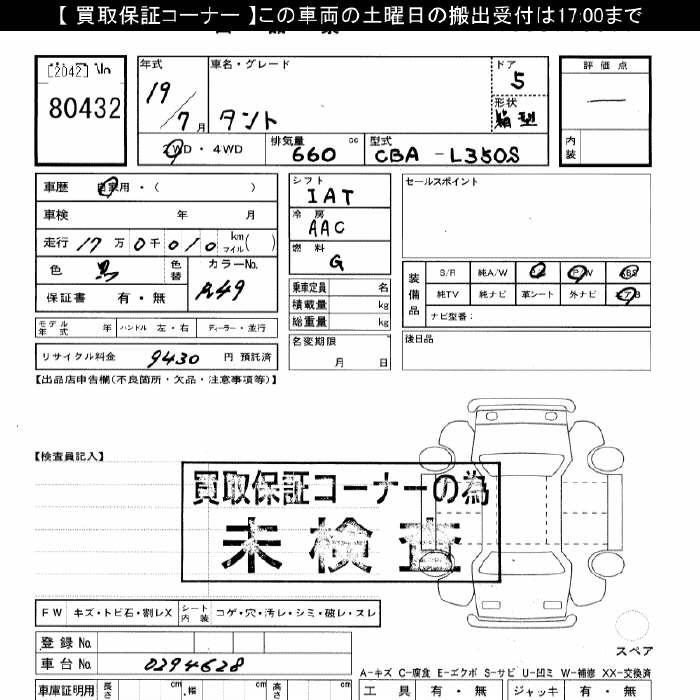 【 買取保証コーナー 】この車両の土曜日の搬出受付は17:00まで
[2042] No
80432
年式
19/7月
車名・グレード
タント
ドア
5
形状
箱型
評価点
内装
2WD・4WD
排気量
660 cc
型式
CBA - L350S
車歴 自家用・( )
車検 年 月
走行 17万0千010 km マイル( )
色 黒 色替
カラーNo.
A49
保証書 有・無
モデル年式 年 ハンドル 左・右 ディーラー・並行
リサイクル料金 9430 円 預託済
シフト
IAT
冷房
AAC
燃料
G
乗車定員 名
積載量 kg
総重量 kg
名変期限
月 日
セールスポイント
装備品
S/R 純A/W P/S P/W ABS
純TV 純ナビ 革シート 外ナビ エアB
ナビ型番:
後日品
【出品店申告欄(不良箇所・欠品・注意事項等)】
【検査員記入】
買取保証コーナーの為
未検査
FW キズ・トビ石・割レX シート内装 コゲ・穴・汚レ・シミ・破レ・スレ
登録 No.
車台 No. 0294628
スペア
A-キズ C-腐食 E-エクボ S-サビ U-凹ミ W-補修 XX-交換済
車庫証明用 長さ cm 幅 cm 高さ cm
工具 有・無 ジャッキ 有・無